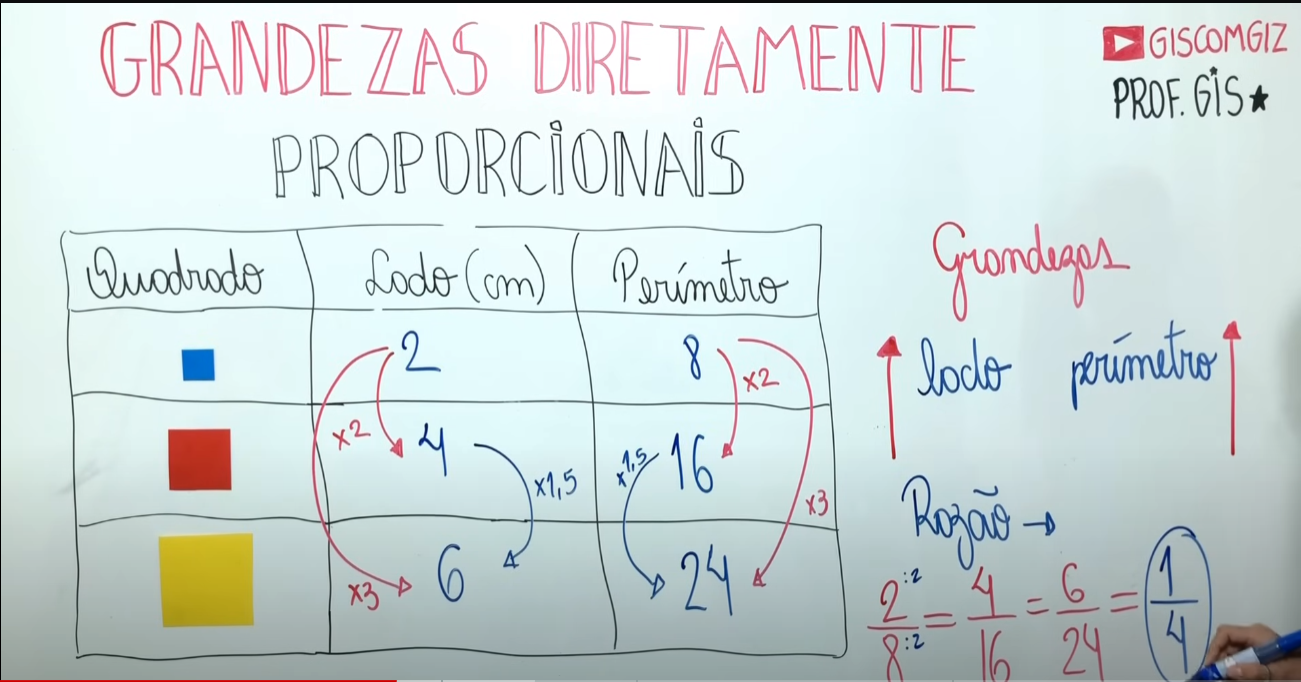 GRANDEZAS DIRETAMENTE
PROPORCIONAIS
GISCOMGIZ
PROF. GIS
Quadrado Lado (cm) Perímetro
2 8
x2 x2
4 16
x1,5 x1,5
x3 x3
6 24
Grandezas
lado perímetro
Razão →
2:2/8:2 = 4/16 = 6/24 = 1/4